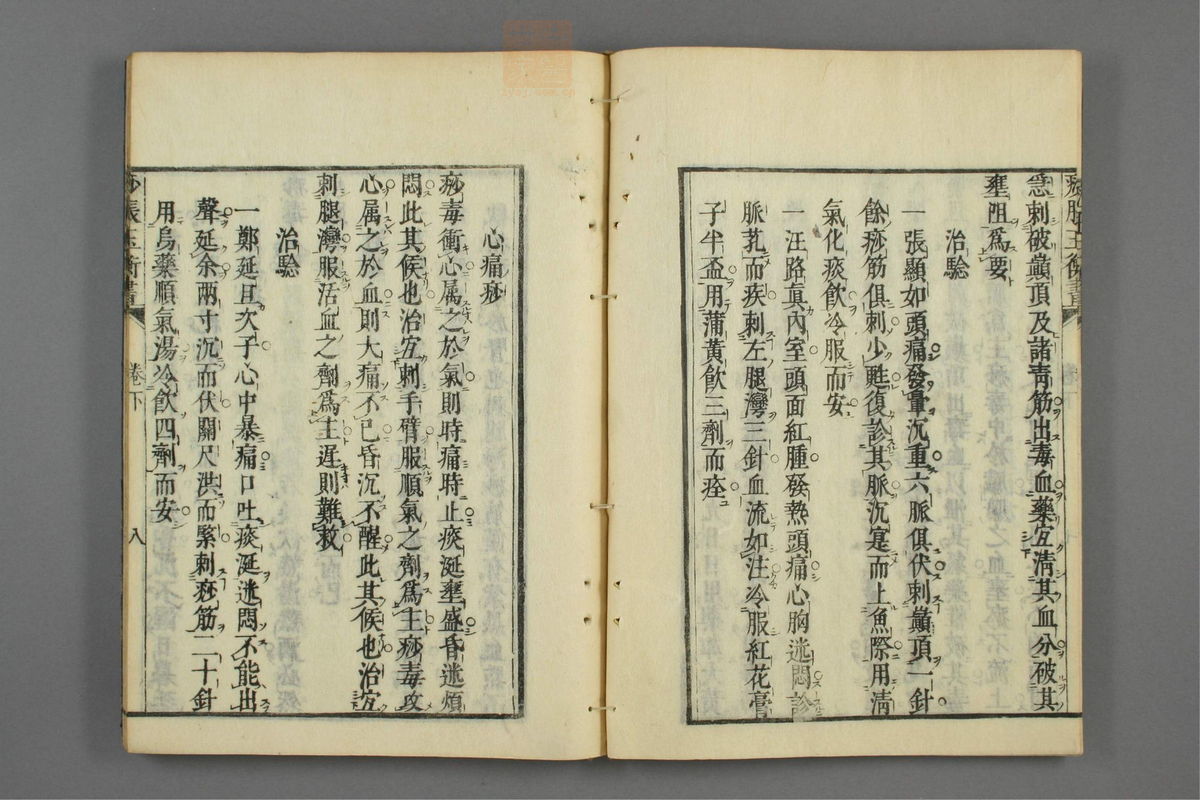 急刺破巔頂及諸青筋出毒血藥宜清其血分破其
壅阻為要
治驗
一張顯如頭痛發暈沉重六脈俱伏刺巔頂一針
餘痧筋俱刺少甦復診其脈沉寔而上魚際用清
氣化痰飲冷服而安
一汪路真內室頭面紅腫發熱頭痛心胸迷悶診
脈芤而疾刺左腿灣三針血流如注冷服紅花膏
子半盃用蒲黃飲三劑而痊
心痛痧
痧毒衝心属之於氣則時痛時止痰涎壅盛昏迷煩
悶此其候也治宜刺手臂服順氣之劑為主痧毒攻
心属之於血則大痛不已昏沉不醒此其候也治宜
刺腿灣服活血之劑為主遲則難救
治驗
一鄭延且次子心中暴痛口吐痰涎迷悶不能出
聲延余兩寸沉而伏關尺洪而緊刺痧筋二十針
用烏藥順氣湯冷飲四劑而安
痧脹玉衡書
卷下
八